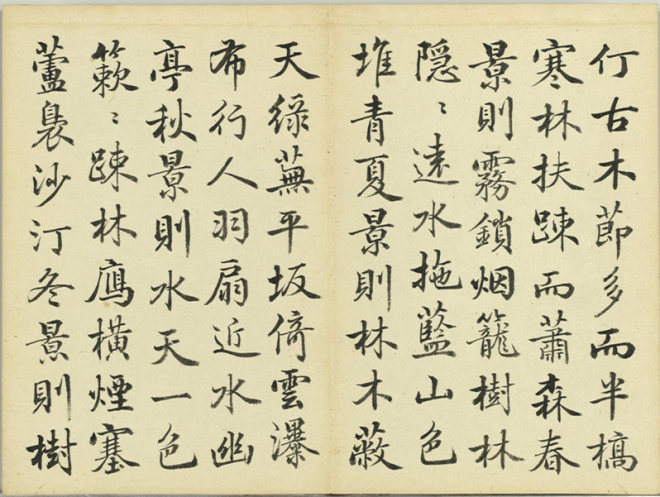 仃古木節多而半槁
寒林扶踈而蕭森春
景則霧鎖烟籠樹林
隐〻遠水拖藍山色
堆青夏景則林木蔽
天綠蕪平坂倚雲瀑
布行人羽扇近水幽
亭秋景則水天一色
簌〻踈林鴈橫煙塞
蘆裊沙汀冬景則樹